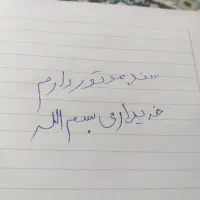 سند موتور دارم
خریداری بسم الله